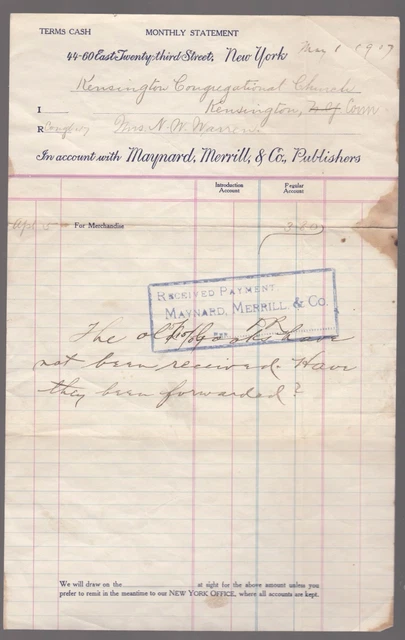 TERMS CASH MONTHLY STATEMENT
44-60 East Twenty-third Street, New York May 1 1907
Kensington Congregational Church
I Kensington, N.Y. Conn
R Mrs. N. W. Warren
In account with Maynard, Merrill, & Co., Publishers
Introduction Account Regular Account
Apl 5 For Merchandise
RECEIVED PAYMENT.
MAYNARD, MERRILL, & CO.
PER
The old books have
not been received. Have
they been forwarded?
We will draw on the at sight for the above amount unless you
prefer to remit in the meantime to our NEW YORK OFFICE, where all accounts are kept.